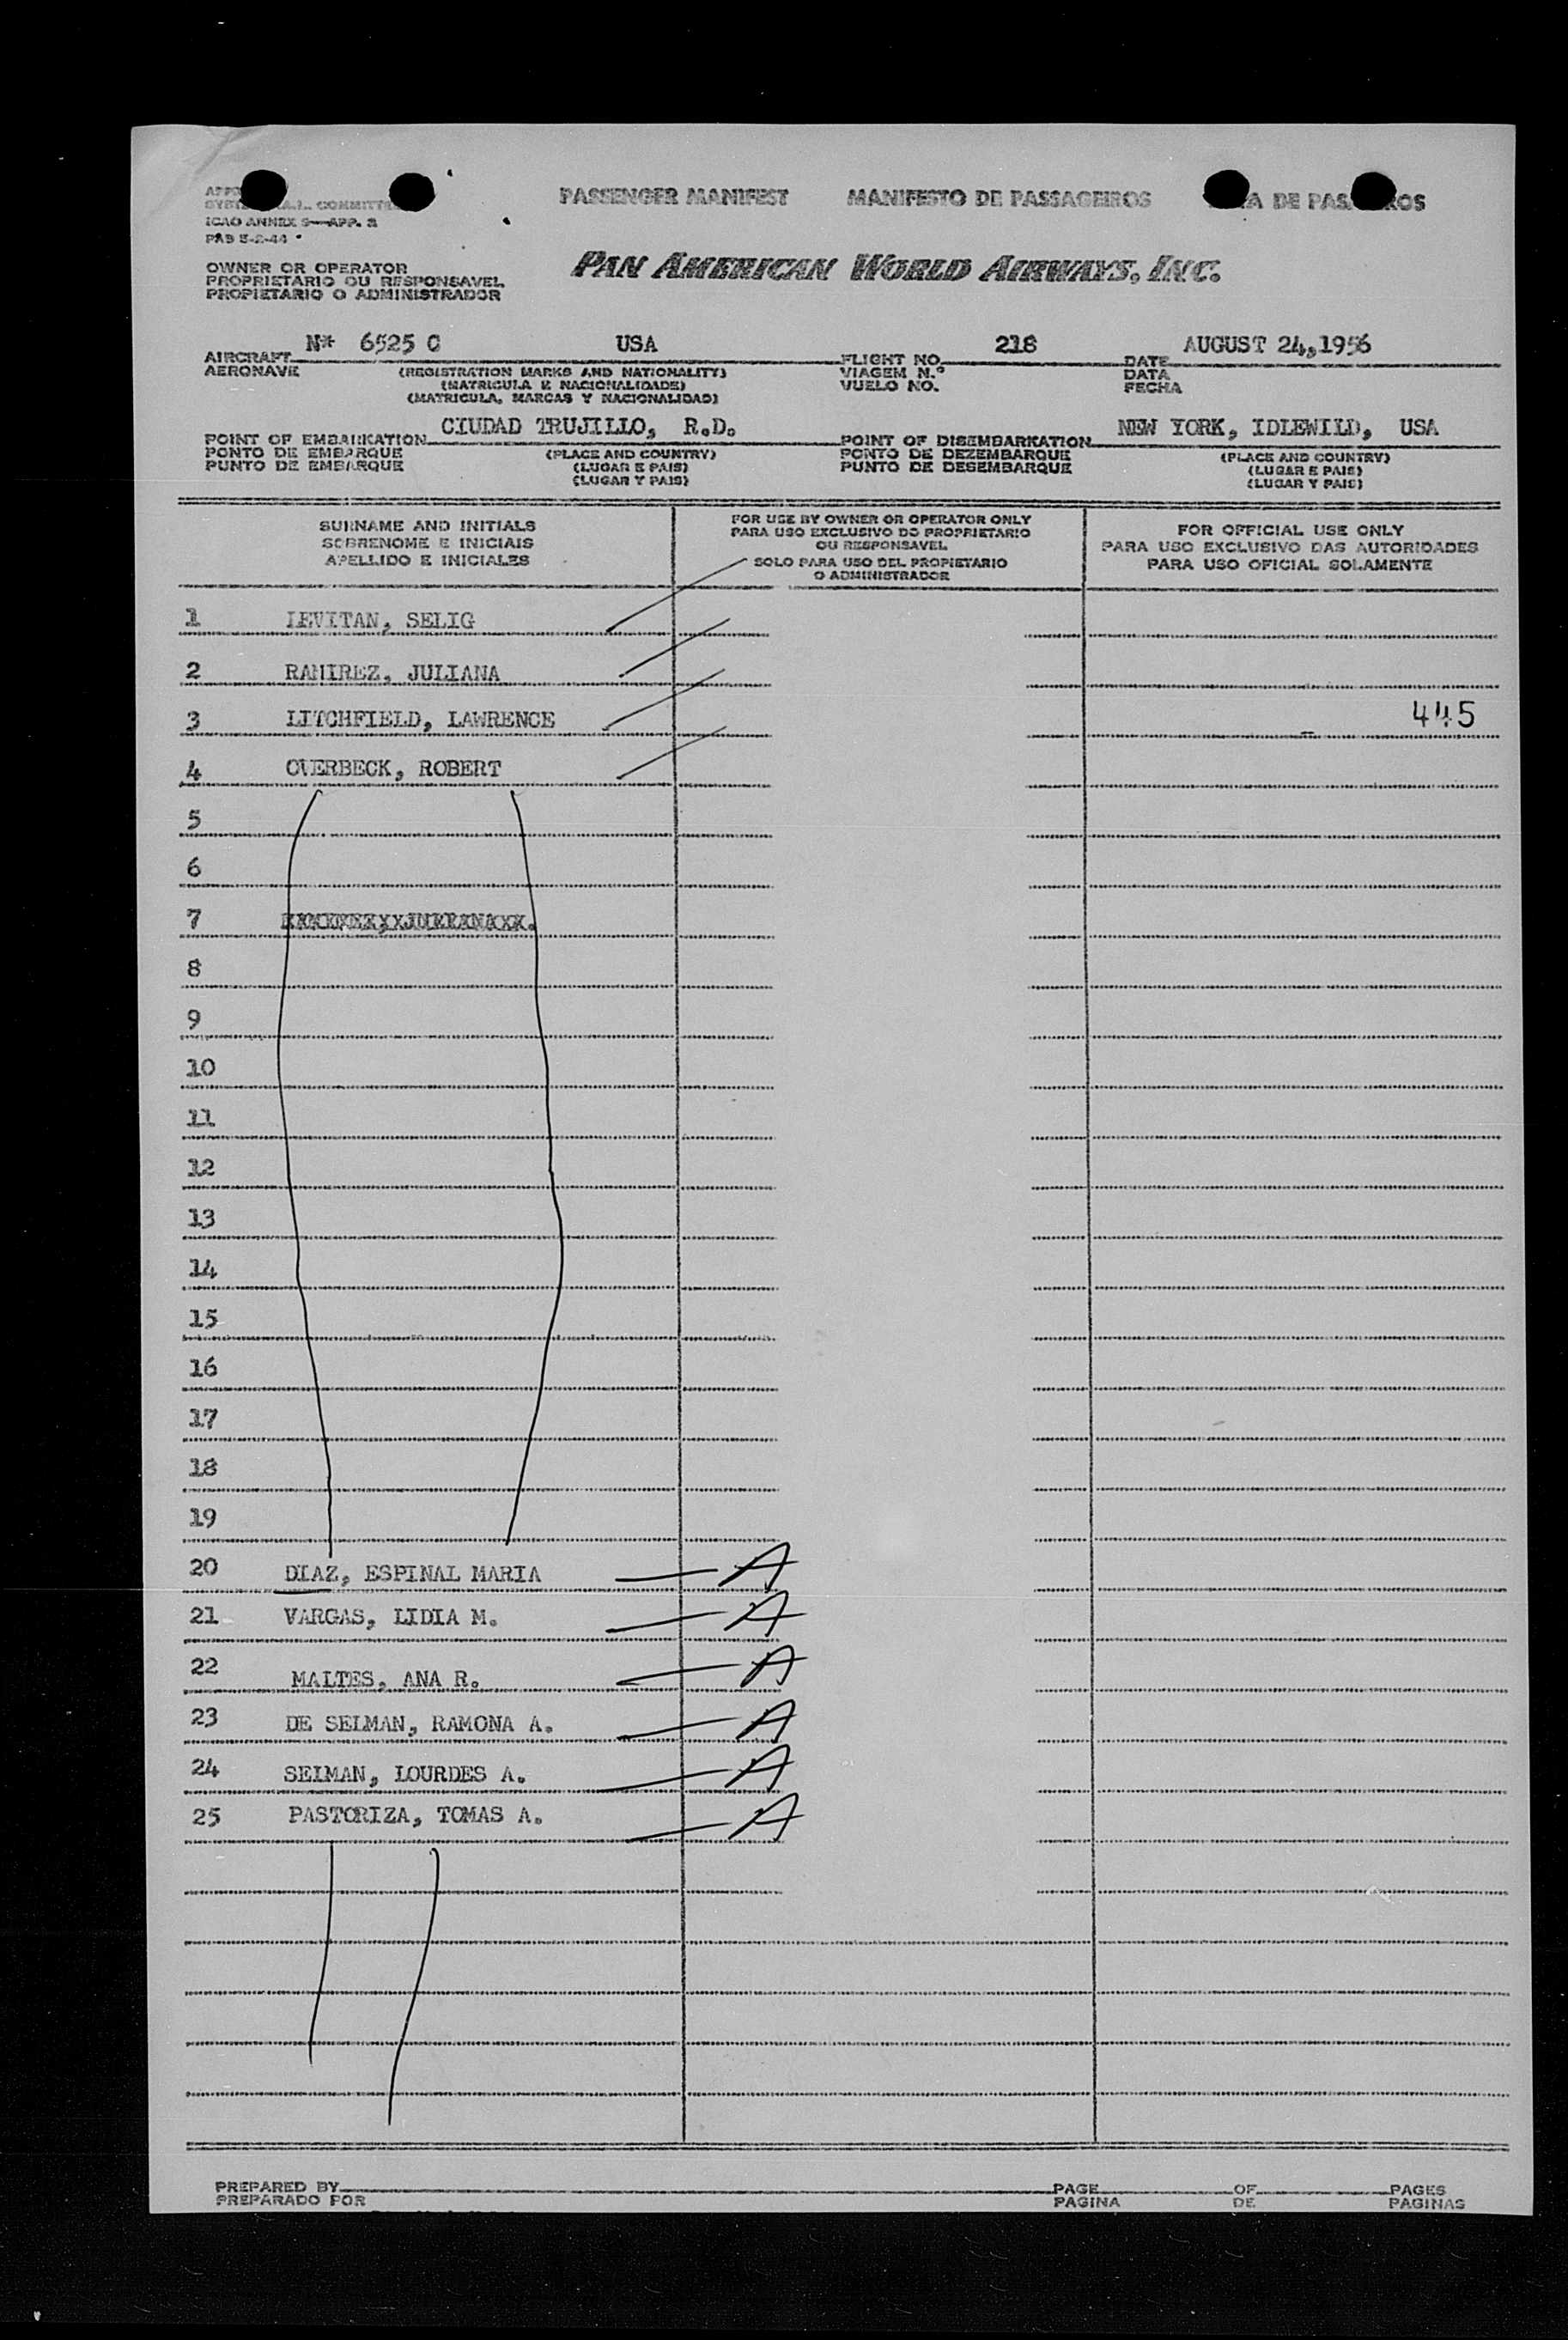 PASSENGER MANIFEST MANIFESTO DE PASSAGEIROS DE
COMMITTEE
ICAO ANNEX 9—APP. 2
PAB 5-2-44
OWNER OR OPERATOR
PROPRIETARIO OU RESPONSAVEL
PROPIETARIO O ADMINISTRADOR
PAN AMERICAN WORLD AIRWAYS, INC.
N* 6525 C USA 218 AUGUST 24,1956
AIRCRAFT FLIGHT NO. DATE
AERONAVE (REGISTRATION MARKS AND NATIONALITY) VIAGEM N.º DATA
(MATRICULA E NACIONALIDADE) VUELO NO. FECHA
(MATRICULA, MARCAS Y NACIONALIDAD)
CIUDAD TRUJILLO, R.D. NEW YORK, IDLEWILD, USA
POINT OF EMBARKATION POINT OF DISEMBARKATION
PONTO DE EMBARQUE (PLACE AND COUNTRY) PONTO DE DEZEMBARQUE (PLACE AND COUNTRY)
PUNTO DE EMBARQUE (LUGAR E PAIS) PUNTO DE DESEMBARQUE (LUGAR E PAIS)
(LUGAR Y PAIS) (LUGAR Y PAIS)
SURNAME AND INITIALS
SOBRENOME E INICIAIS
APELLIDO E INICIALES
FOR USE BY OWNER OR OPERATOR ONLY
PARA USO EXCLUSIVO DO PROPRIETARIO
OU RESPONSAVEL
SOLO PARA USO DEL PROPIETARIO
O ADMINISTRADOR
FOR OFFICIAL USE ONLY
PARA USO EXCLUSIVO DAS AUTORIDADES
PARA USO OFICIAL SOLAMENTE
1 LEVITAN, SELIG
2 RAMIREZ, JULIANA
3 LITCHFIELD, LAWRENCE 445
4 OVERBECK, ROBERT
5
6
7
8
9
10
11
12
13
14
15
16
17
18
19
20 DIAZ, ESPINAL MARIA A
21 VARGAS, LIDIA M. A
22 MALTES, ANA R. A
23 DE SELMAN, RAMONA A. A
24 SELMAN, LOURDES A. A
25 PASTORIZA, TOMAS A. A
PREPARED BY PAGE OF PAGES
PREPARADO POR PAGINA DE PAGINAS